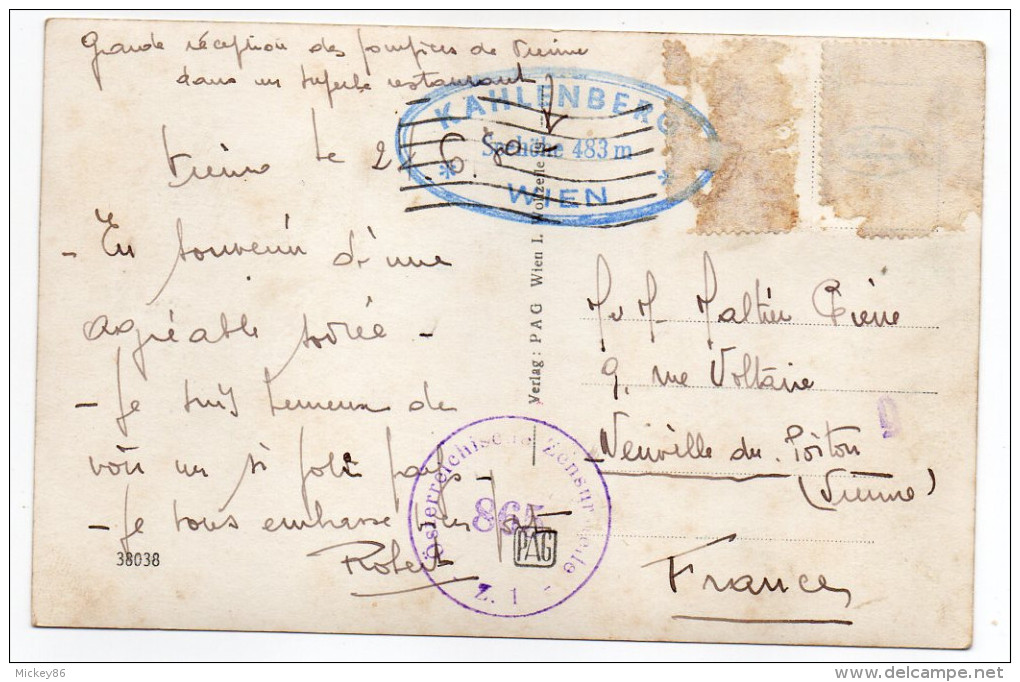 Grande réception des pompiers de Vienne
dans un superbe restaurant
KAHLENBERG
Seehöhe 483 m
WIEN
Vienne le 2. 6. 50
- En souvenir d'une
agréable soirée -
- Je suis heureux de
voir un si joli pays -
- Je vous embrasse
Robert
38038
Verlag: PAG Wien I. Wollzeile 19
Österreichische Zensurstelle
865
Z. 1
PAG
Mr Mr Maltier Pierre
9, rue Voltaire
9
Neuville du Poitou
(Vienne)
France
Mickey86
www.delcampe.net